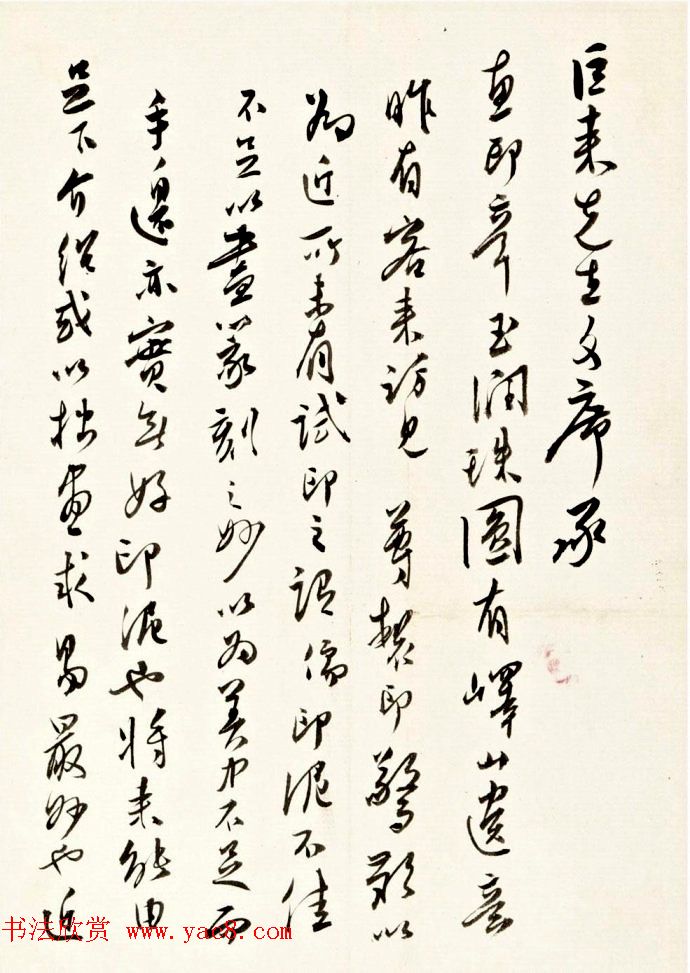 巨来先生文席承
惠印章玉润珠圆有嶧山遗意
昨有客来访见 尊製印驚歎以
为近所未有試印之謂倘印泥不佳
不足以盡篆刻之妙以为美中不足而
手邊亦實無好印泥也将来能由
足下介绍或以拙畫求易最妙也近
书法欣赏 www.yac8.com